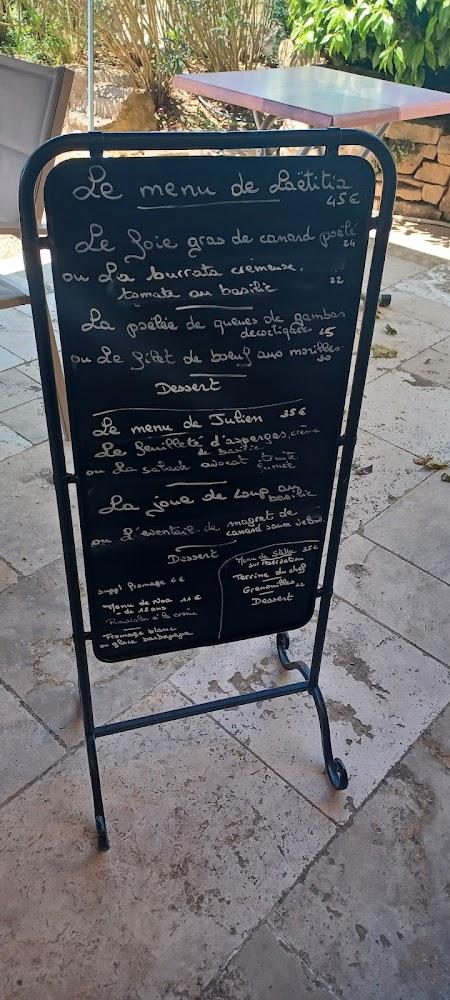 Le menu de Laëtitia
45€
Le foie gras de canard poêlé
24
ou La burrata crémeuse.
tomate au basilic
22
La poêlée de queues de gambas
decortiquées 25
ou Le filet de boeuf aux morilles
30
Dessert
Le menu de Julien 35€
Le feuilleté d'asperges, crème
de basilic
ou La salade avocat truite
fumée
La joue de Loup au
basilic
ou L'eventail de magret de
canard sauce
Dessert
suppl fromage 6€
Menu de Noa 11€
- de 12 ans
Ravioles à la crème
Fromage blanc
ou glace barbapapa
Menu de Stella 35€
sur réservation
Terrine du chef
Grenouilles 22
Dessert